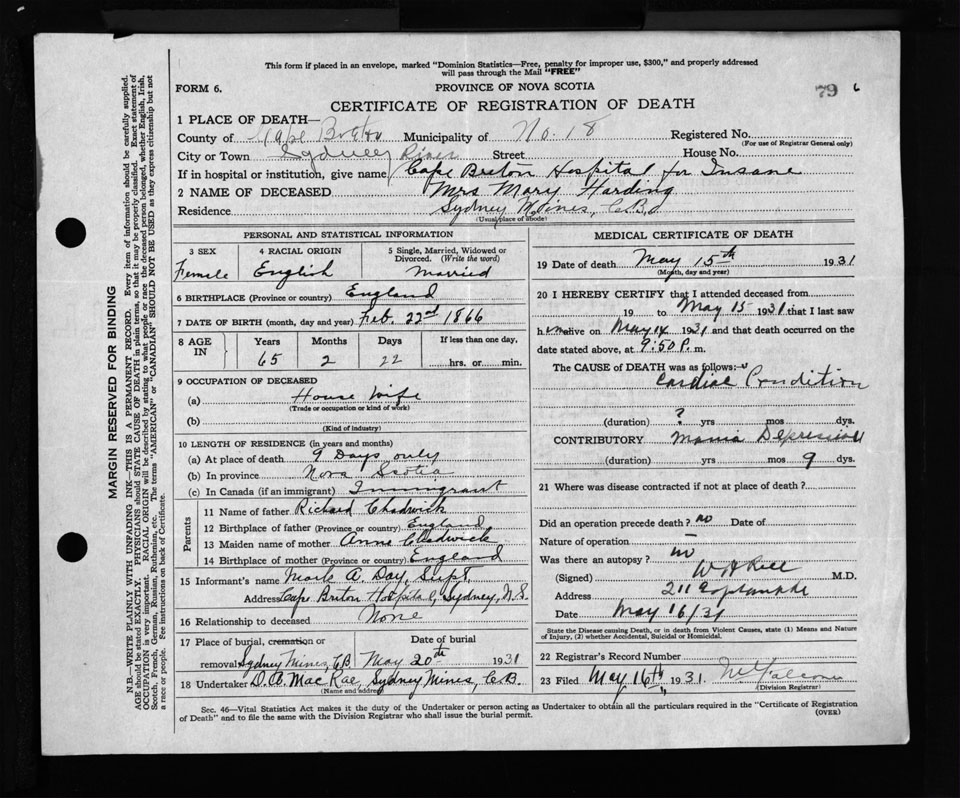 This form if placed in an envelope, marked "Dominion Statistics—Free, penalty for improper use, $300," and properly addressed
will pass through the Mail "FREE"
FORM 6.
PROVINCE OF NOVA SCOTIA
79 6
CERTIFICATE OF REGISTRATION OF DEATH
1 PLACE OF DEATH—
County of Cape Breton Municipality of No. 18 Registered No.
(For use of Registrar General only)
City or Town Sydney River Street House No.
If in hospital or institution, give name Cape Breton Hospital for Insane
2 NAME OF DECEASED Mrs Mary Harding
Residence Sydney Mines, C.B.
(Usual place of abode)
MARGIN RESERVED FOR BINDING
N.B.—WRITE PLAINLY WITH UNFADING INK—THIS IS A PERMANENT RECORD. Every item of information should be carefully supplied.
AGE should be stated EXACTLY. PHYSICIANS should STATE CAUSE OF DEATH in plain terms, so that it may be properly classified. Exact statement of
OCCUPATION is very important. RACIAL ORIGIN will be described by stating to what people or race the deceased person belonged, whether English, Irish,
Scotch, French, German, Russian, Ruthenian, etc. The terms "AMERICAN" or "CANADIAN" SHOULD NOT BE USED as they express citizenship but not
a race or people. See instructions on back of Certificate.
PERSONAL AND STATISTICAL INFORMATION
3 SEX
Female
4 RACIAL ORIGIN
English
5 Single, Married, Widowed or
Divorced. (Write the word)
Married
6 BIRTHPLACE (Province or country) England
7 DATE OF BIRTH (month, day and year) Feb. 22nd 1866
8 AGE IN
Years Months Days If less than one day,
65 2 22 hrs. or min.
9 OCCUPATION OF DECEASED
(a) House Wife
(Trade or occupation or kind of work)
(b)
(Kind of industry)
10 LENGTH OF RESIDENCE (in years and months)
(a) At place of death 9 Days only
(b) In province Nova Scotia
(c) In Canada (if an immigrant) Immigrant
Parents
11 Name of father Richard Chadwick
12 Birthplace of father (Province or country) England
13 Maiden name of mother Anne Chadwick
14 Birthplace of mother (Province or country) England
15 Informant's name A. Day, Supt.
Address Cape Breton Hospital, Sydney, N.S.
16 Relationship to deceased None
17 Place of burial, cremation or Date of burial
removal Sydney Mines CB May 20th 1931
18 Undertaker D.A. MacRae, Sydney Mines, C.B.
(Name and address)
MEDICAL CERTIFICATE OF DEATH
19 Date of death May 15th 1931
(Month, day and year)
20 I HEREBY CERTIFY that I attended deceased from
19 to May 15 1931 that I last saw
h alive on May 14 1931 and that death occurred on the
date stated above, at 9:50 P. m.
The CAUSE of DEATH was as follows:—
Cardiac Condition
(duration) ? yrs mos dys.
CONTRIBUTORY Mania
(duration) yrs mos 9 dys.
21 Where was disease contracted if not at place of death?
Did an operation precede death? no Date of
Nature of operation
Was there an autopsy? no
(Signed) M.D.
Address 211
Date May 16/31
State the Disease causing Death, or in death from Violent Causes, state (1) Means and Nature
of Injury, (2) whether Accidental, Suicidal or Homicidal.
22 Registrar's Record Number
23 Filed May 16th 1931.
(Division Registrar)
Sec. 46—Vital Statistics Act makes it the duty of the Undertaker or person acting as Undertaker to obtain all the particulars required in the "Certificate of Registration
of Death" and to file the same with the Division Registrar who shall issue the burial permit.
(OVER)